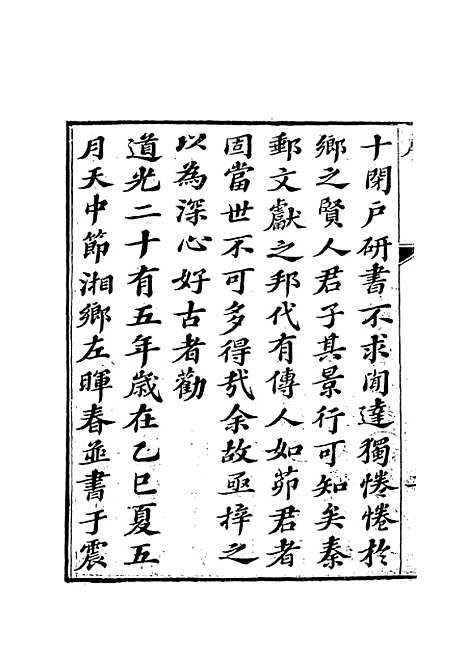 十閉戶研書不求聞達獨惓惓於
鄉之賢人君子其景行可知矣秦
郵文獻之邦代有傳人如茆君者
固當世不可多得哉余故亟梓之
以為深心好古者勸
道光二十有五年歲在乙巳夏五
月天中節湘鄉左暉春並書于震